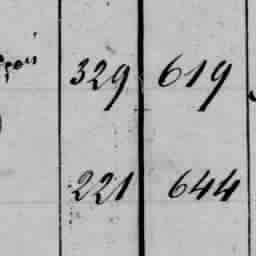 329 619
221 644